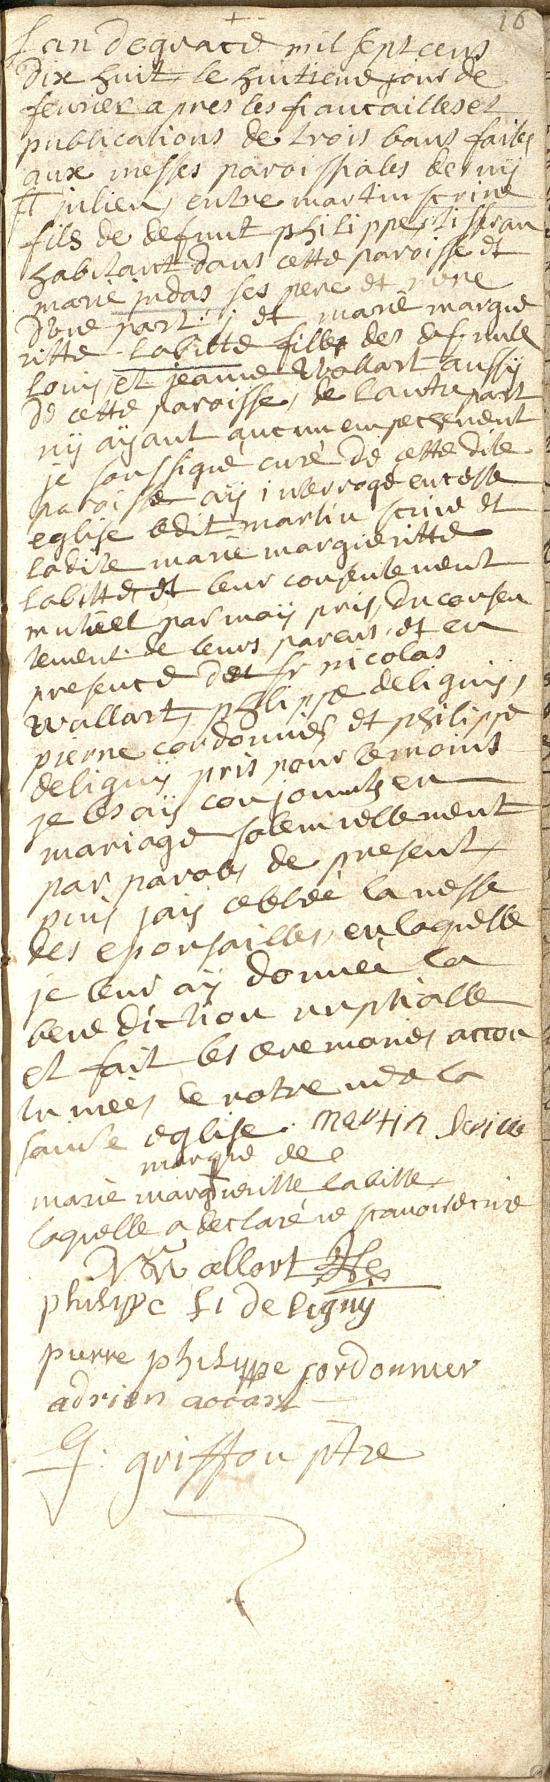 16
Lan de grace mil sept cens
dix huit le huitieme jour de
fevrier apres les fiancailles et
publications de trois bans faites
aux messes paroissiales de
st julien, entre martin scrive
fils de defunt philippe tisseran
habitant dans cette paroisse et
marie judas ses pere et mere
d'une part ; et marie margue
ritte Labitte fille des defunts
Louis et jeanne Wallart aussy
de cette paroisse, de lautre part
ny aÿant aucun empechement
je soussigné curé de cette dite
paroisse aÿ interrogé en cette
eglise ledit martin scrive et
ladite marie margueritte
Labitte et leur consentement
mutuel par moÿ pris, du consen
tement de leurs parens, et en
presence de sr nicolas
Wallart, philippe deligny,
pierre cordonnier et philippe
deligny pris pour temoins
je les aÿ conjoints en
mariage solemnellement
par paroles de present
puis jaÿ celebré la messe
des epousailles, en laquelle
je leur aÿ donneé la
benediction nuptialle
et fait les ceremonies accou
tumeés de notre mere la
sainte eglise. martin scrive
marque de
marie margueritte labitte
laquelle a declaré ne scavoir ecrire
N Wallart
philippe deligny
pierre philippe cordonnier
adrien
G. griffon ptre